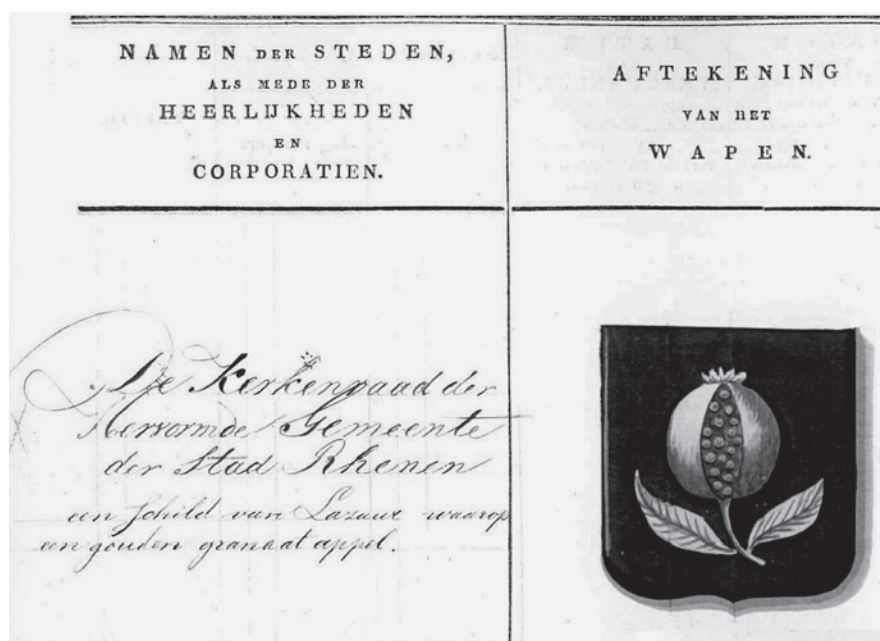 NAMEN DER STEDEN,
ALS MEDE DER
HEERLIJKHEDEN
EN
CORPORATIEN.
AFTEKENING
VAN HET
WAPEN.
De Kerkenraad der
Hervormde Gemeente
der Stad Rhenen
een schild van Lazuur waarop
een gouden granaat appel.